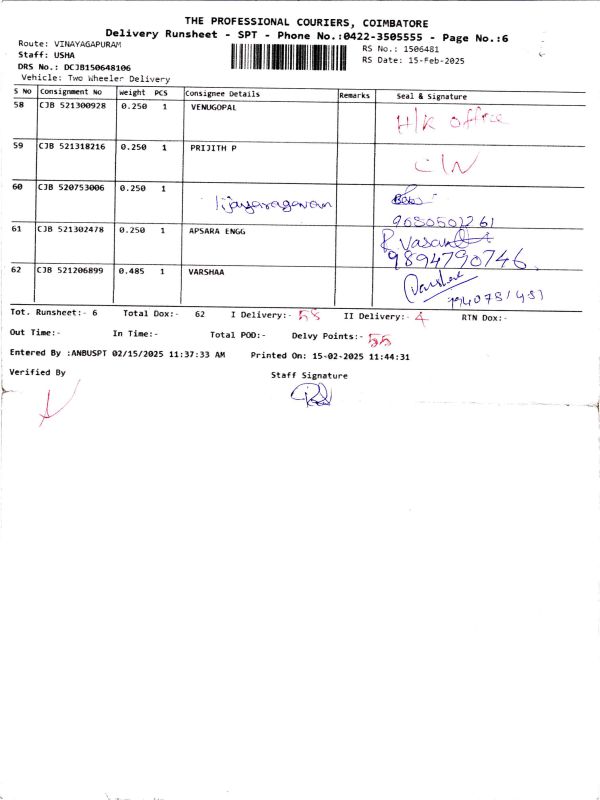 THE PROFESSIONAL COURIERS, COIMBATORE
Delivery Runsheet - SPT - Phone No.:0422-3505555 - Page No.:6
Route: VINAYAGAPURAM
Staff: USHA
DRS No.: DCJB150648106
Vehicle: Two Wheeler Delivery
RS No.: 1506481
RS Date: 15-Feb-2025
S NO Consignment No weight PCS Consignee Details Remarks Seal & Signature
58 CJB 521300928 0.250 1 VENUGOPAL H/K office
59 CJB 521318216 0.250 1 PRIJITH P C/N
60 CJB 520753006 0.250 1 Vijayaragavan
9080501261
61 CJB 521302478 0.250 1 APSARA ENGG R Vasantha
9894790746
62 CJB 521206899 0.485 1 VARSHAA Varshaa
Tot. Runsheet:- 6 Total Dox:- 62 I Delivery:- 58 II Delivery:- 4 RTN Dox:-
Out Time:- In Time:- Total POD:- Delvy Points:- 55
Entered By :ANBUSPT 02/15/2025 11:37:33 AM Printed On: 15-02-2025 11:44:31
Verified By Staff Signature